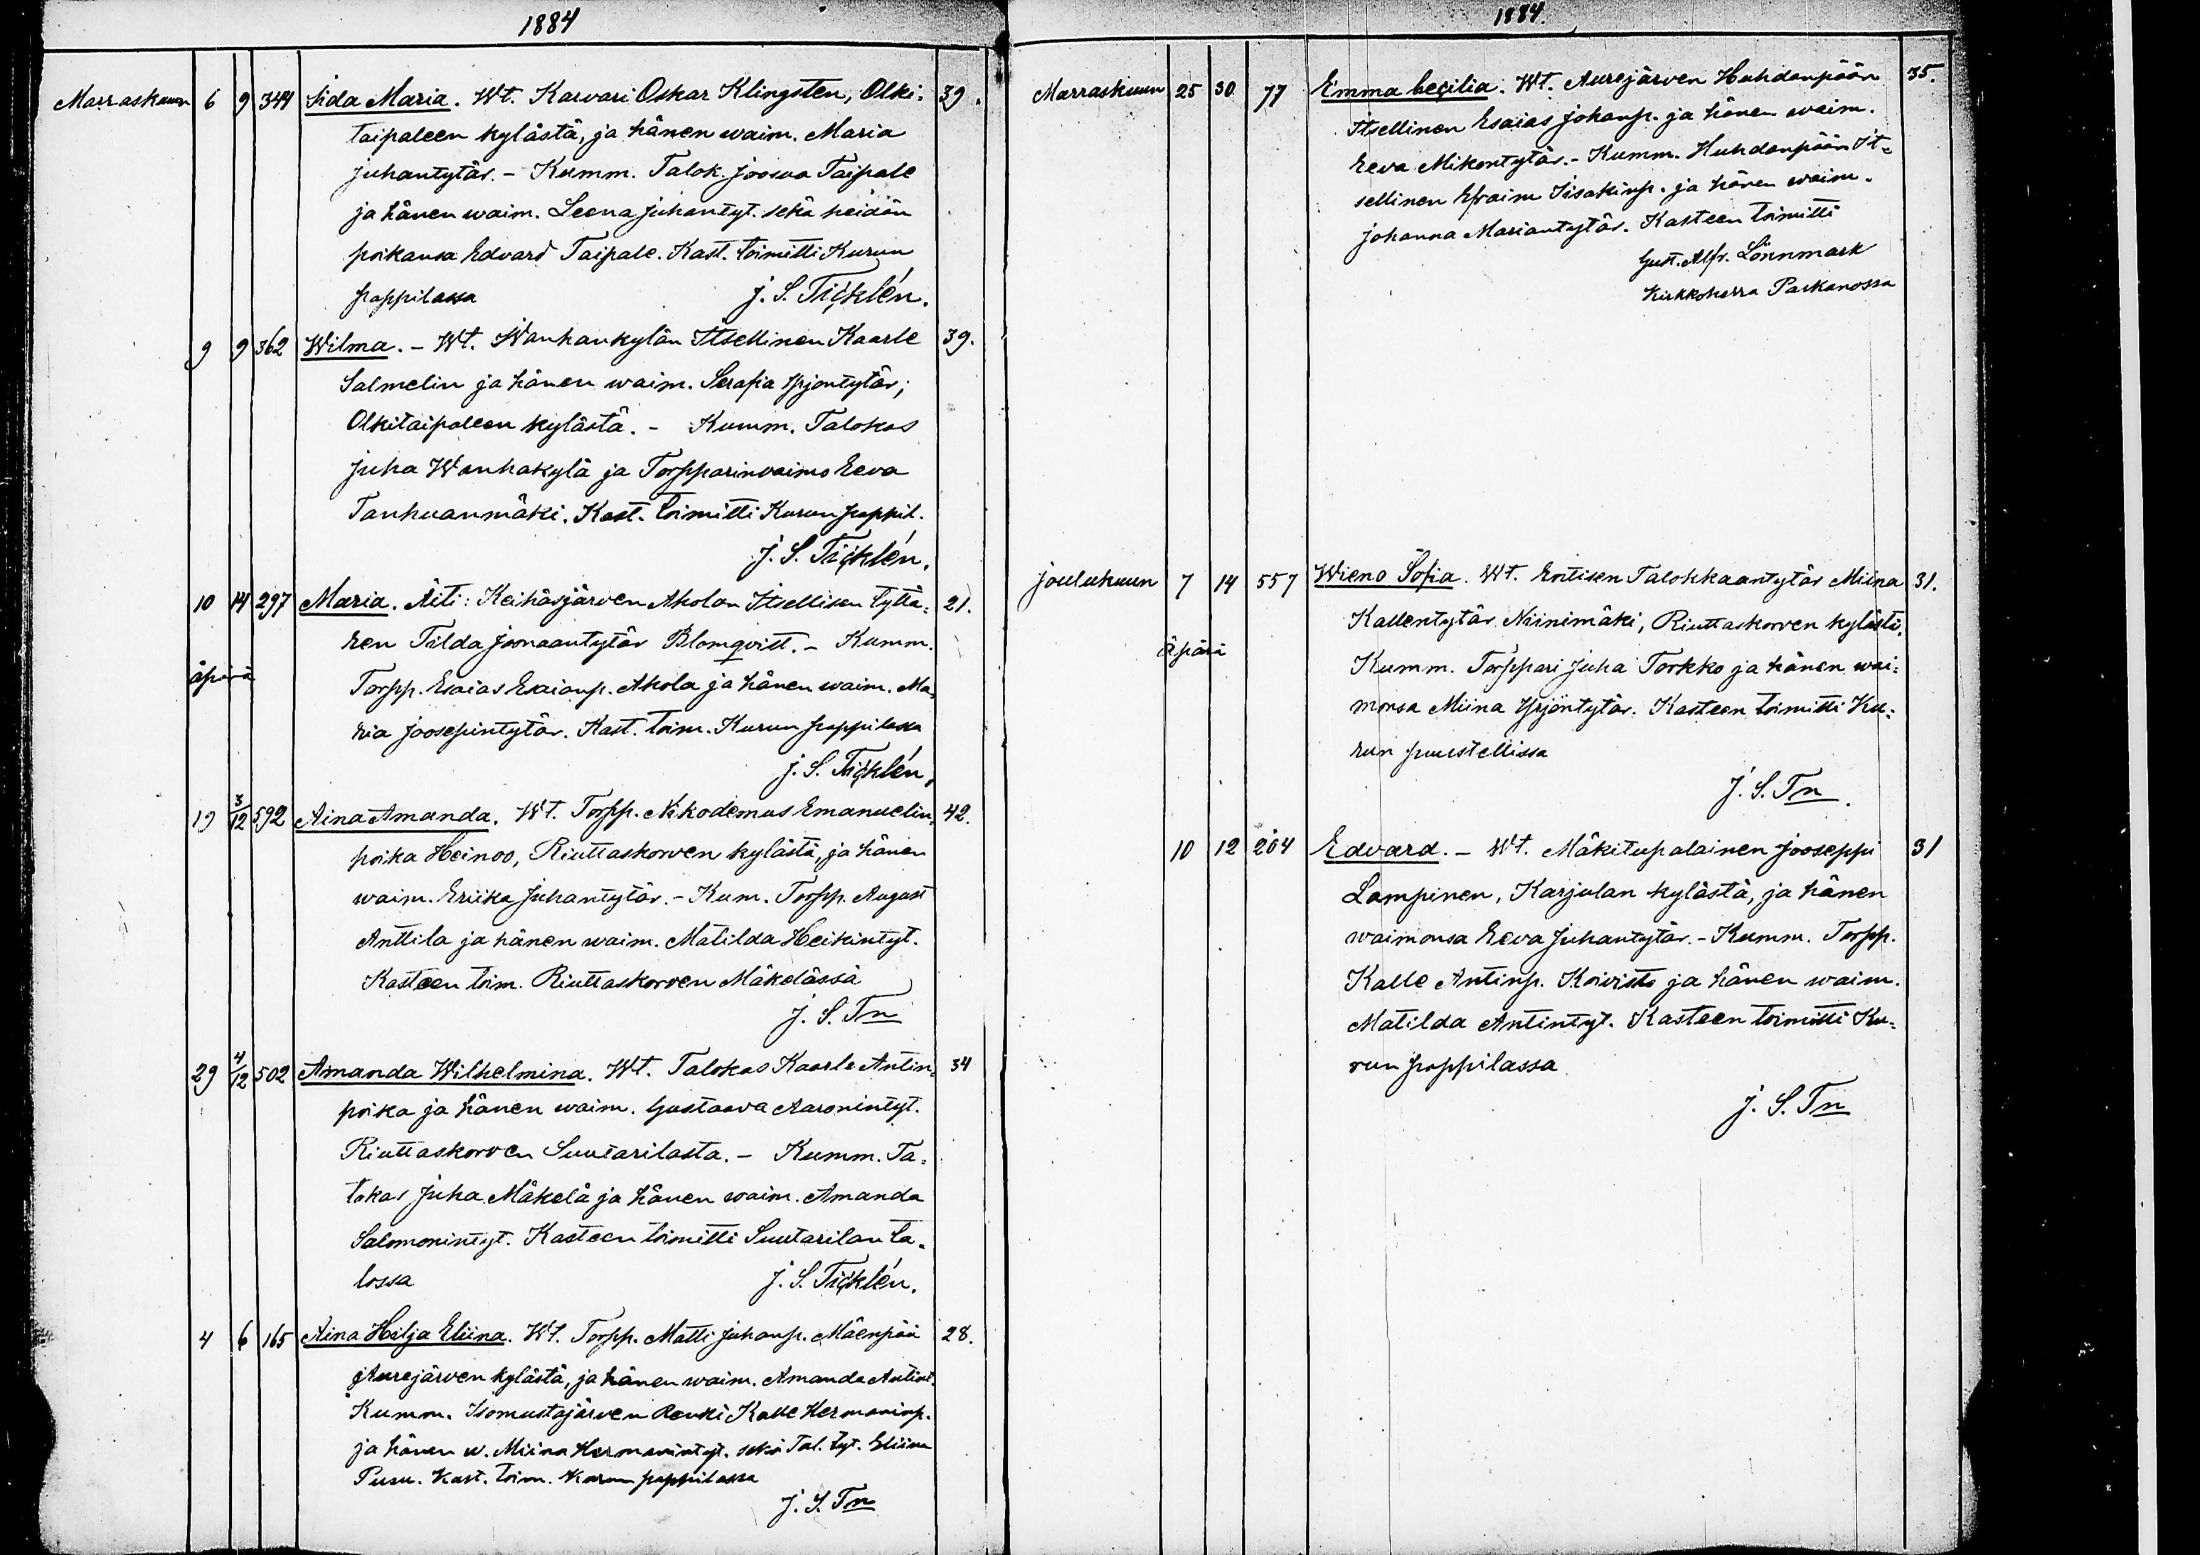 1884
Marraskuun 6 9 344 Iida Maria. Wt. Karvari Oskar Klingsten, Olki- 39.
taipaleen kylästä, ja hänen waim. Maria
Juhantytär. - Kumm. Talok. Joosua Taipale
ja hänen waim. Leena Juhantyt. sekä heidän
poikansa Edvard Taipale. Kast. toimitti Kurun
pappilassa J. S. Ticklén.
9 9 362 Wilma. - Wt. Wanhankylän Itsellinen Kaarle 39.
Salmelin ja hänen waim. Serafia Yrjöntytär,
Olkitaipaleen kylästä. - Kumm. Talokas
Juha Wanhakylä ja Torpparinvaimo Eeva
Tanhuanmäki. Kast. toimitti Kurun pappil.
J. S. Ticklén.
10 14 297 Maria. Äiti: Keihäsjärven Aholan Itsellisen tyttä- 21.
ren Tilda Joonaantytär Blomqvist. - Kumm.
äpärä
Torpp. Esaias Esaianp. Ahola ja hänen waim. Ma-
ria Joosepintytär. Kast. toim. Kurun pappilassa
J. S. Ticklén.
19 3/12 592 Aina Amanda. Wt. Torpp. Nikodemus Emanuelin- 42.
poika Heinoo, Riuttaskorven kylästä, ja hänen
waim. Eriika Juhantytär. - Kum. Torpp. August
Anttila ja hänen waim. Matilda Heikintyt.
Kasteen toim. Riuttaskorven Mäkelässä
J. S. Tn
29 4/12 502 Amanda Wilhelmina. Wt. Talokas Kaarle Antin- 34
poika ja hänen waim. Gustaava Aaronintyt.
Riuttaskorven Suutarilasta. - Kumm. Ta-
lokas Juha Mäkelä ja hänen waim. Amanda
Salomonintyt. Kasteen toimitti Suutarilan ta-
lossa J. S. Ticklén.
4 6 165 Aina Hilja Eliina. Wt. Torpp. Matti Juhanp. Mäenpää 28.
Aurejärven kylästä, ja hänen waim. Amanda Antint.
Kumm. Isomustajärven Renki Kalle Hermaninp.
ja hänen w. Miina Hermanintyt. sekä Tal. tyt. Eliina
Pusu. Kast. toim. Kurun pappilassa
J. S. Tn
1884.
Marraskuun 25 30 77 Emma Cecilia. Wt. Aurejärven Huhdanpään 35.
Itsellinen Esaias Johanp. ja hänen waim.
Eeva Mikontytär. - Kumm. Huhdanpään It-
sellinen Efraim Iisakinp. ja hänen waim.
Johanna Mariantytär. Kasteen toimitti
Gust. Alfr. Lönnmark
Kirkkoherra Parkanossa
Joulukuun 7 14 557 Wieno Sofia. Wt. Entisen Talokkaantytär Miina 31.
Kallentytär Niinimäki, Riuttaskorven kylästä.
äpärä
Kumm. Torppari Juha Torkko ja hänen wai-
monsa Miina Yrjöntytär. Kasteen toimitti Ku-
run puustellissa
J. S. Tn.
10 12 204 Edvard. - Wt. Mäkitupalainen Jooseppi 31
Lampinen, Karjulan kylästä, ja hänen
waimonsa Eeva Juhantytär. - Kumm. Torpp.
Kalle Antinp. Koivisto ja hänen waim.
Matilda Antintyt. Kasteen toimitti Ku-
run pappilassa
J. S. Tn